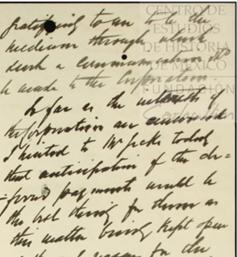 gratifying to me to be the
medium through which
such a communication
be made to the Corporation.
So far as the interests of
the Corporation are concerned
I hinted to Mr Jacks today
that anticipation of the de-
ferred payments would be
the best thing for them as
this matter being kept open
for the
CENTRO DE
ESTUDIOS
DE HISTORIA
DE MÉXICO
FUNDACIÓN